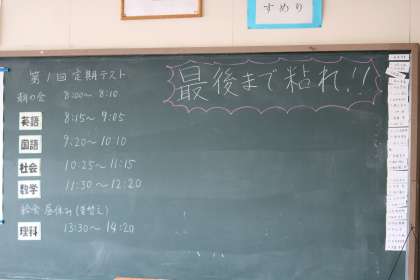 すめり
第1回定期テスト
最後まで粘れ!!
朝の会 8:00〜8:10
英語 8:15〜9:05
国語 9:20〜10:10
社会 10:25〜11:15
数学 11:30〜12:20
給食 昼休み(着替え)
理科 13:30〜14:20